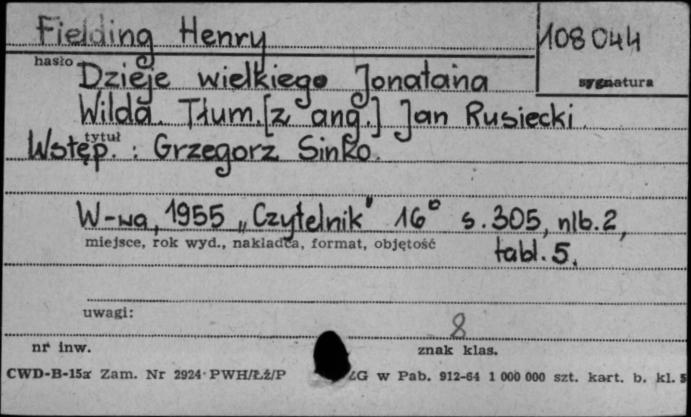 Fielding Henry
108044
hasło
sygnatura
Dzieje wielkiego Jonatana
Wilda. Tłum. [z ang.] Jan Rusiecki.
tytuł
Wstęp. : Grzegorz Sinko.
W-wa, 1955 „Czytelnik" 16° s. 305, nlb. 2,
miejsce, rok wyd., nakładca, format, objętość
tabl. 5.
uwagi:
8
nr inw.
znak klas.
CWD-B-15a Zam. Nr 2924 PWH/Łż/P ŁG w Pab. 912-64 1 000 000 szt. kart. b. kl. 5